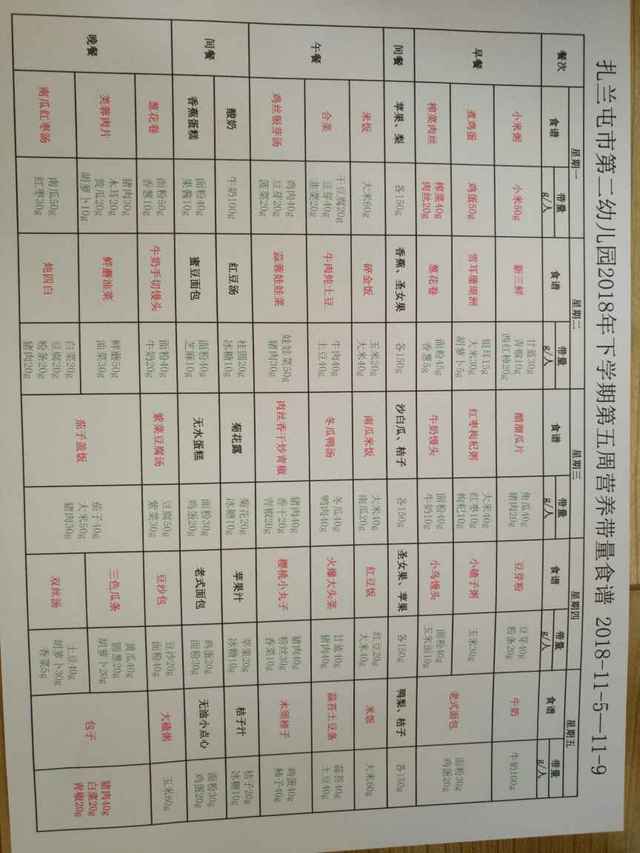 扎兰屯市第二幼儿园2018年下学期第五周营养带量食谱 2018-11-5—11-9
餐次 星期一 星期二 星期三 星期四 星期五
食谱 带量g/人 食谱 带量g/人 食谱 带量g/人 食谱 带量g/人 食谱 带量g/人
早餐
小米粥 小米50g 新三鲜 甘蓝30g 青椒10g 西红柿20g 醋溜瓜片 角瓜40g 猪肉20g 豆芽粉 豆芽40g 粉条20g 牛奶 牛奶100g
煮鸡蛋 鸡蛋50g 银耳15g 大米30g 胡萝卜5g 红枣枸杞粥 大米40g 红枣10g 枸杞10g 小碴子粥 玉米30g 老式面包 面粉30g 鸡蛋20g
榨菜肉丝 榨菜40g 肉丝20g 葱花卷 面粉45g 香葱5g 牛奶馒头 面粉40g 牛奶10g 小鸟馒头 面粉40g 玉米面10g
间餐 苹果、梨 各150g 香蕉、圣女果 各150g 沙白瓜、桔子 各150g 圣女果、苹果 各150g 鸭梨、桔子 各150g
午餐
米饭 大米60g 碎金饭 玉米20g 大米40g 南瓜米饭 大米40g 南瓜20g 红豆饭 红豆20g 大米40g 米饭 大米60g
合菜 干豆腐20g 豆芽40g 韭菜20g 牛肉炖土豆 牛肉40g 土豆40g 冬瓜鸭汤 冬瓜40g 鸭肉40g 火爆大头菜 甘蓝40g 猪肉40g 蒜苔土豆条 蒜苔40g 土豆40g
鸡丝银芽汤 鸡肉40g 豆芽20g 菠菜20g 蒜蓉娃娃菜 娃娃菜50g 猪肉30g 肉丝香干炒青椒 猪肉40g 香干20g 青椒20g 樱桃小丸子 猪肉40g 粉丝30g 香菜10g 木须柿子 鸡蛋40g 柿子40g
间餐
酸奶 牛奶100g 红豆汤 桂圆20g 冰糖10g 菊花露 菊花20g 冰糖10g 苹果汁 苹果20g 冰糖10g 桔子汁 桔子20g 冰糖10g
香蕉蛋糕 面粉40g 果酱10g 蜜豆面包 面粉40g 芝麻10g 无水蛋糕 面粉30g 鸡蛋20g 老式面包 鸡蛋20g 面粉30g 无油小点心 面粉30g 鸡蛋20g
晚餐
葱花卷 面粉50g 香葱10g 牛奶手切馒头 面粉40g 牛奶20g 紫菜豆腐汤 豆腐50g 紫菜30g 豆沙包 豆沙20g 面粉40g 大碴粥 玉米60g
芙蓉肉片 猪肉30g 木耳20g 黄瓜20g 胡萝卜10g 鲜蘑油菜 鲜蘑50g 油菜30g 茄子盖饭 茄子40g 大米50g 猪肉30g 三色瓜条 黄瓜40g 圆葱20g 胡萝卜20g 包子 猪肉40g 白菜20g 青椒20g
南瓜红枣汤 南瓜50g 红枣30g 炖四白 白菜20g 豆腐20g 粉条20g 猪肉20g 双丝汤 土豆40g 胡萝卜30g 香菜5g